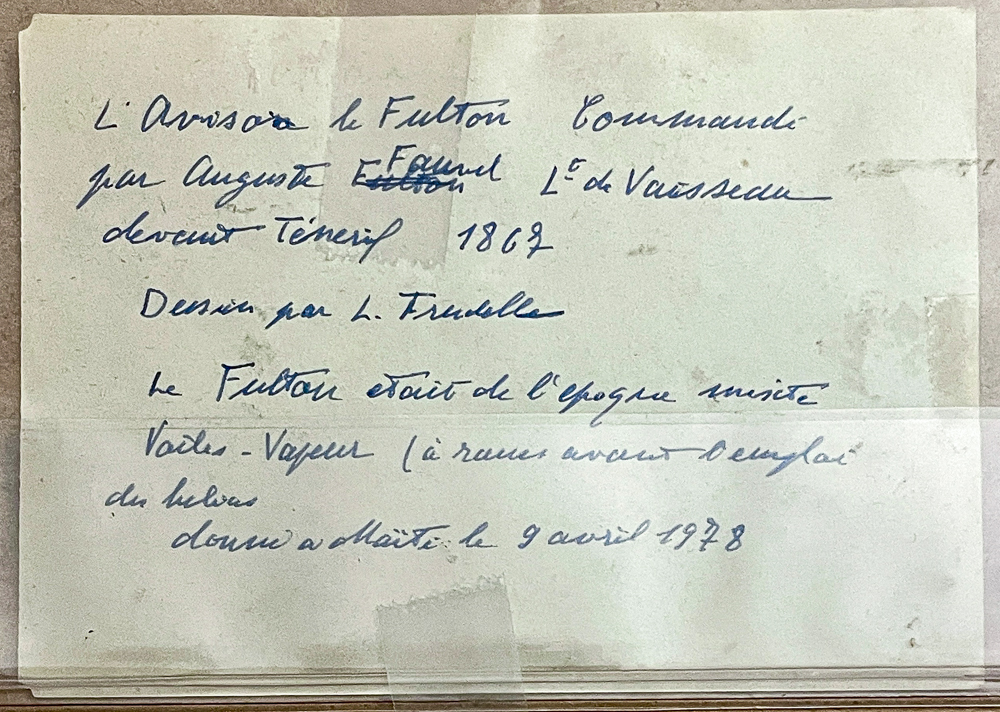 L'Aviso le Fulton Commandé
par Auguste Fauvel Lt de Vaisseau
devant Ténérif 1867
Dessin par L. Trudelle
Le Fulton était de l'epoque mixte
Voiles - Vapeur (à roues avant l'emploi
des helices
donné a Maïté le 9 avril 1978